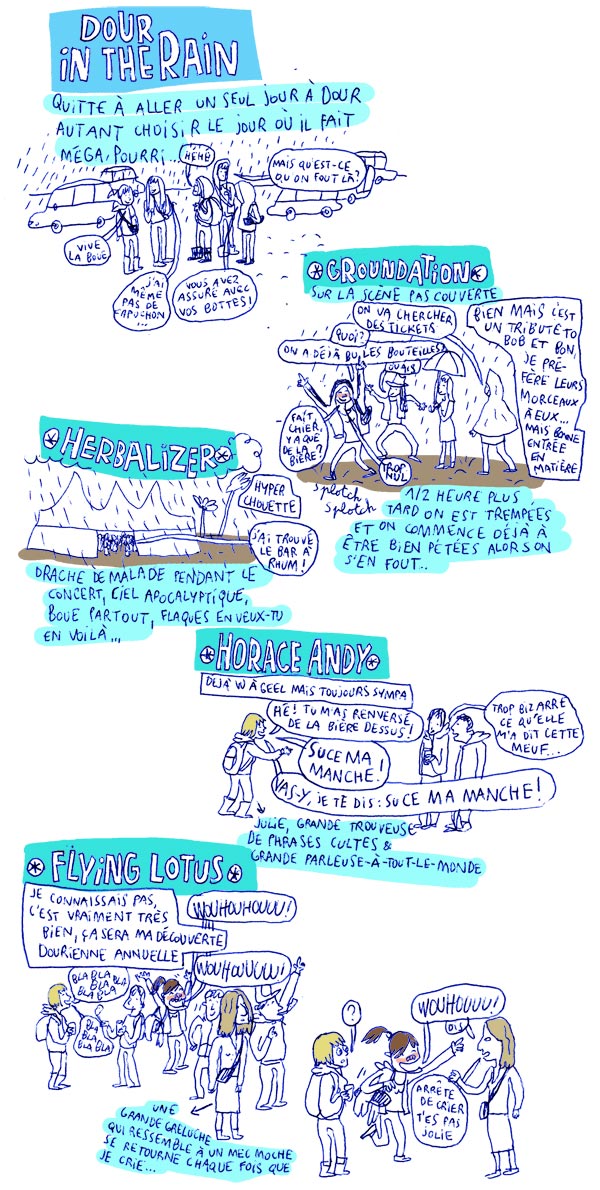 DOUR
IN THE RAIN
QUITTE À ALLER UN SEUL JOUR À DOUR
AUTANT CHOISIR LE JOUR OÙ IL FAIT
MÉGA POURRI...
HÉHÉ
MAIS QU'EST-CE
QU'ON FOUT LÀ?
VIVE
LA BOUE
J'AI
MÊME
PAS DE
CAPUCHON
...
VOUS AVEZ
ASSURÉ AVEC
VOS BOTTES!
GROUNDATION
SUR LA SCÈNE PAS COUVERTE
ON VA CHERCHER
DES TICKETS
QUOI?
ON A DÉJÀ BU LES BOUTEILLES?
OUAIS
BIEN MAIS C'EST
UN TRIBUTE TO
BOB ET BON,
JE PRÉ-
FÈRE LEURS
MORCEAUX
À EUX...
MAIS BONNE
ENTRÉE
EN
MATIÈRE
FAIT
CHIER,
Y A QUE
DE LA
BIÈRE?
TROP
NUL
Splotch
Splotch
1/2 HEURE PLUS
TARD ON EST TREMPÉES
ET ON COMMENCE DÉJÀ À
ÊTRE BIEN PÉTÉES ALORS ON
S'EN FOUT..
HERBALIZER
HYPER
CHOUETTE
J'AI TROUVÉ
LE BAR À
RHUM!
DRACHE DE MALADE PENDANT LE
CONCERT, CIEL APOCALYPTIQUE,
BOUE PARTOUT, FLAQUES EN VEUX-TU
EN VOILÀ...
HORACE ANDY
DÉJÀ VU À GEEL MAIS TOUJOURS SYMPA
HÉ! TU M'AS RENVERSÉ
DE LA BIÈRE DESSUS!
SUCE MA
MANCHE!
VAS-Y, JE TE DIS: SUCE MA MANCHE!
TROP BIZARRE
CE QU'ELLE
M'A DIT CETTE
MEUF...
JULIE, GRANDE TROUVEUSE
DE PHRASES CULTES &
GRANDE PARLEUSE-À-TOUT-LE-MONDE
FLYING LOTUS
JE CONNAISSAIS PAS,
C'EST VRAIMENT TRÈS
BIEN, ÇA SERA MA DÉCOUVERTE
DOURIENNE ANNUELLE
WOUHOUHOUUU!
WOUHOUUUUU!
BLA BLA
BLA BLA BLA
BLA BLA
BLA
BLA
BLA
BLA BLA
UNE
GRANDE GRELUCHE
QUI RESSEMBLE À UN MEC MOCHE
SE RETOURNE CHAQUE FOIS QUE
JE CRIE...
?
WOUHOUUU!
DIS
ARRÊTE
DE CRIER
T'ES PAS
JOLIE